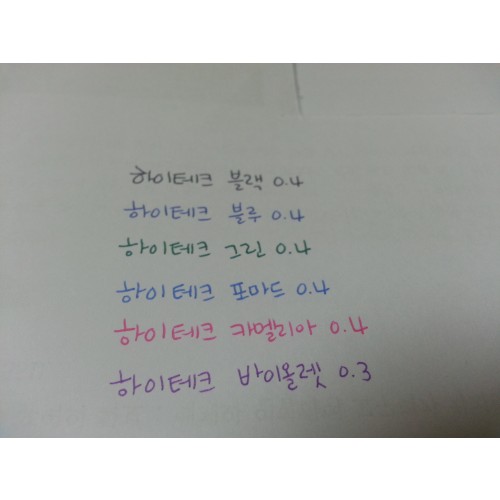 하이테크 블랙 0.4
하이테크 블루 0.4
하이테크 그린 0.4
하이테크 포마드 0.4
하이테크 카멜리아 0.4
하이테크 바이올렛 0.3